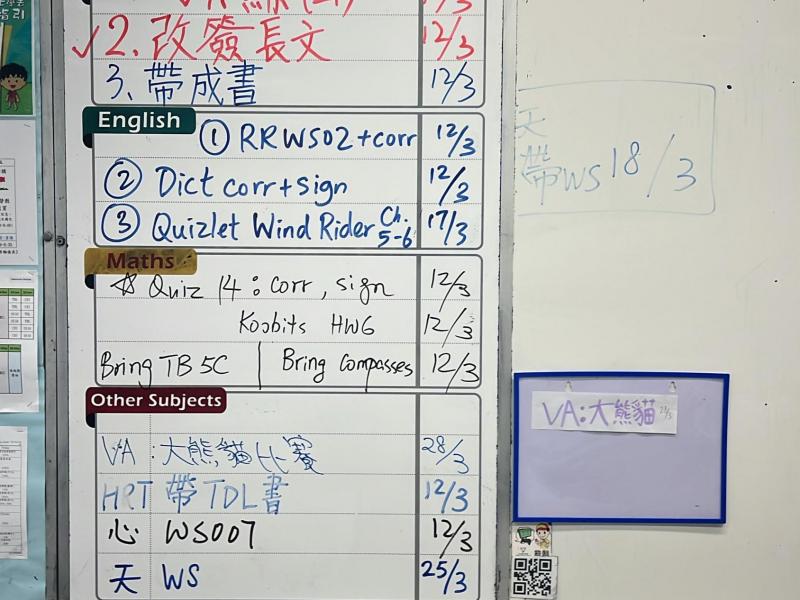 12/3
✓ 2. 改簽長文 12/3
3. 帶成書 12/3
English
① RRWS02+corr 12/3
② Dict corr+sign 12/3
③ Quizlet Wind Rider Ch. 5-6 17/3
Maths
☆ Quiz 14: corr, sign 12/3
Koobits HW6 12/3
Bring TB 5C | Bring Compasses 12/3
Other Subjects
VA: 大熊貓比賽 28/3
HPT 帶TDL書 12/3
心 WS007 12/3
天 WS 25/3
天
帶WS 18/3
VA:大熊貓 28/3